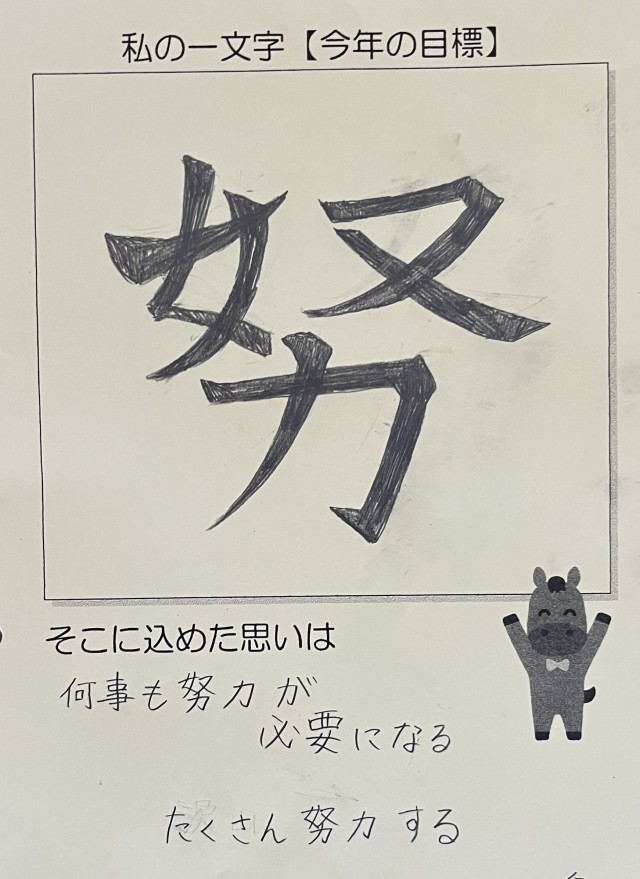 私の一文字【今年の目標】
努
そこに込めた思いは
何事も努力が
必要になる
たくさん努力する